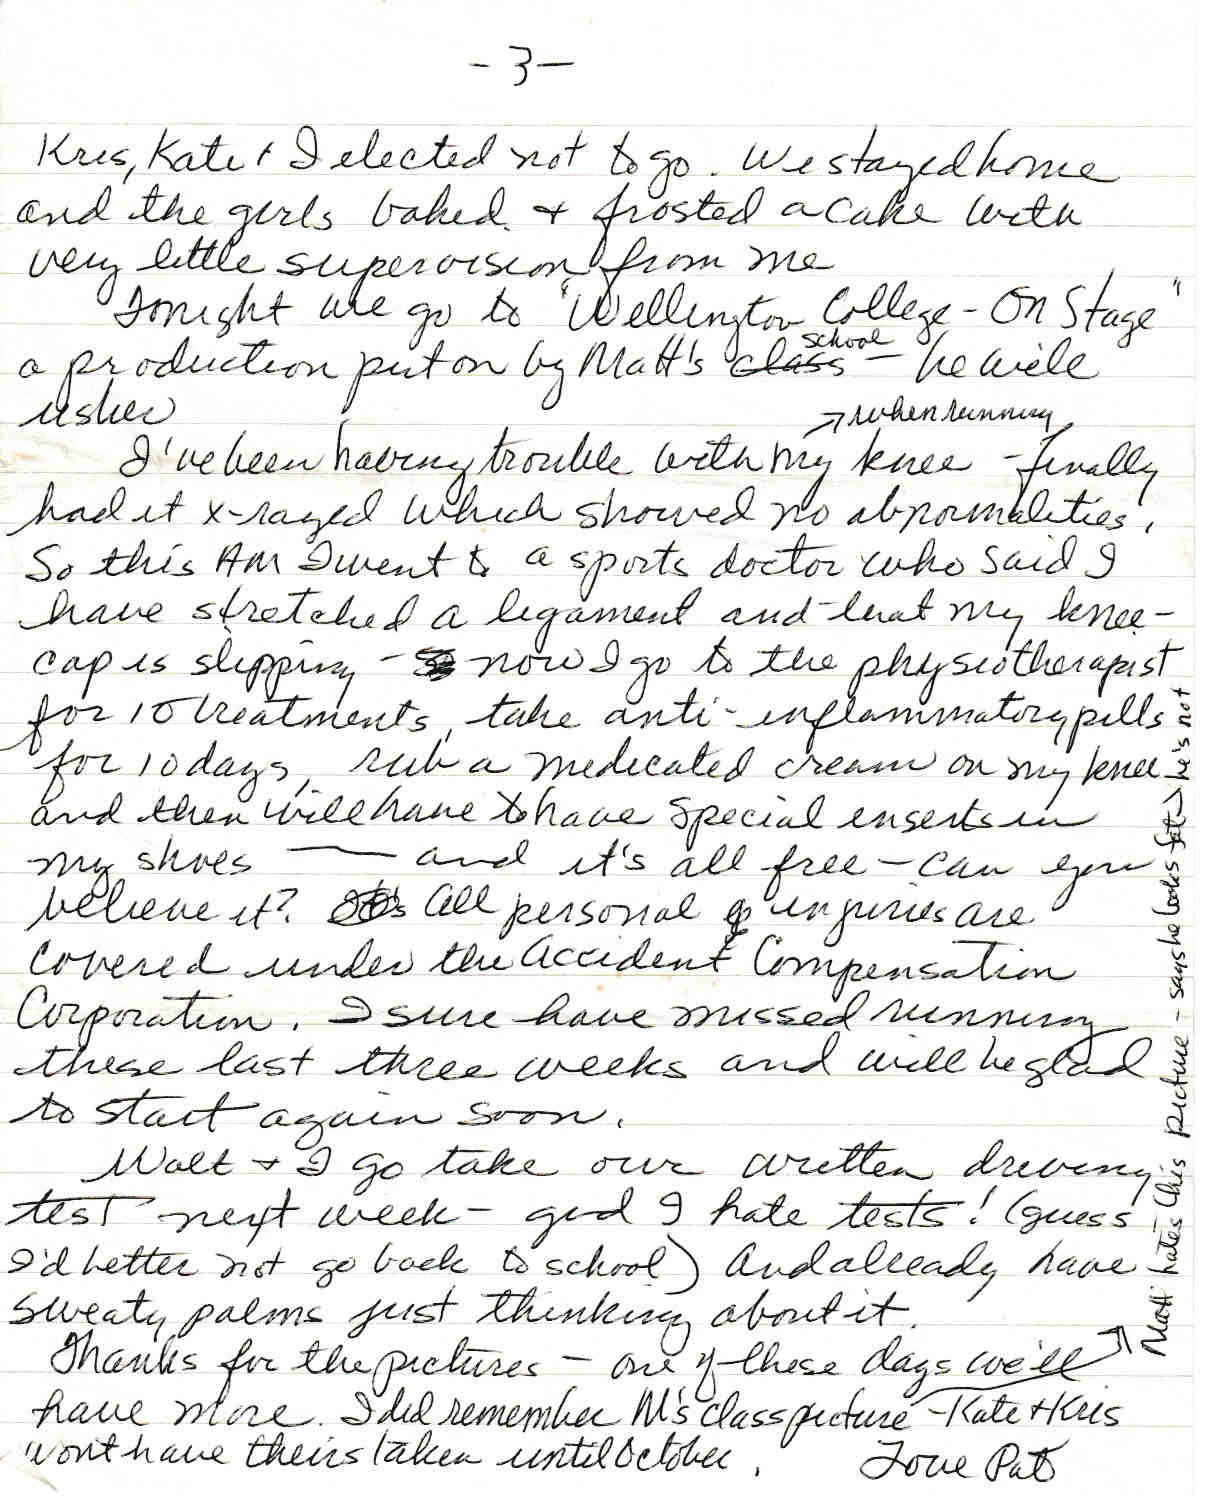 -3-
Kris, Kate + I elected not to go. We stayed home
and the girls baked + frosted a cake with
very little supervision from me
Tonight we go to "Wellington College - On Stage"
a production put on by Matt's class school - he will
usher
I've been having trouble with my knee → when running - finally
had it x-rayed which showed no abnormalities.
So this AM I went to a sports doctor who said I
have stretched a ligament and that my knee-
cap is slipping - now I go to the physiotherapist
for 10 treatments, take anti-inflammatory pills
for 10 days, rub a medicated cream on my knee
and then will have to have special inserts in
my shoes — and it's all free - can you
believe it? It's All personal injuries are
covered under the Accident Compensation
Corporation. I sure have missed running
these last three weeks and will be glad
to start again soon.
Walt + I go take our written driving
test next week - god I hate tests! (guess
I'd better not go back to school) And already have
sweaty palms just thinking about it.
Thanks for the pictures - one of these days we'll
have more. I did remember M's class picture - Kate + Kris
wont have theirs taken until October. Love Pat
Matt hates this picture - says he looks fat → he's not